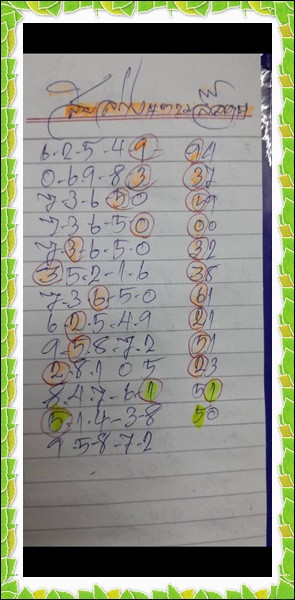 6-2-5-4-9 94
0-6-9-8-3 37
7-3-6-5-0 59
7-3-6-5-0 00
7-3-6-5-0 32
3-5-2-1-6 38
7-3-6-5-0 61
6-2-5-4-9 21
9-5-8-7-2 51
2-8-1 0 5 23
8-4-7-6-1 51
5-1-4-3-8 50
9-5-8-7-2